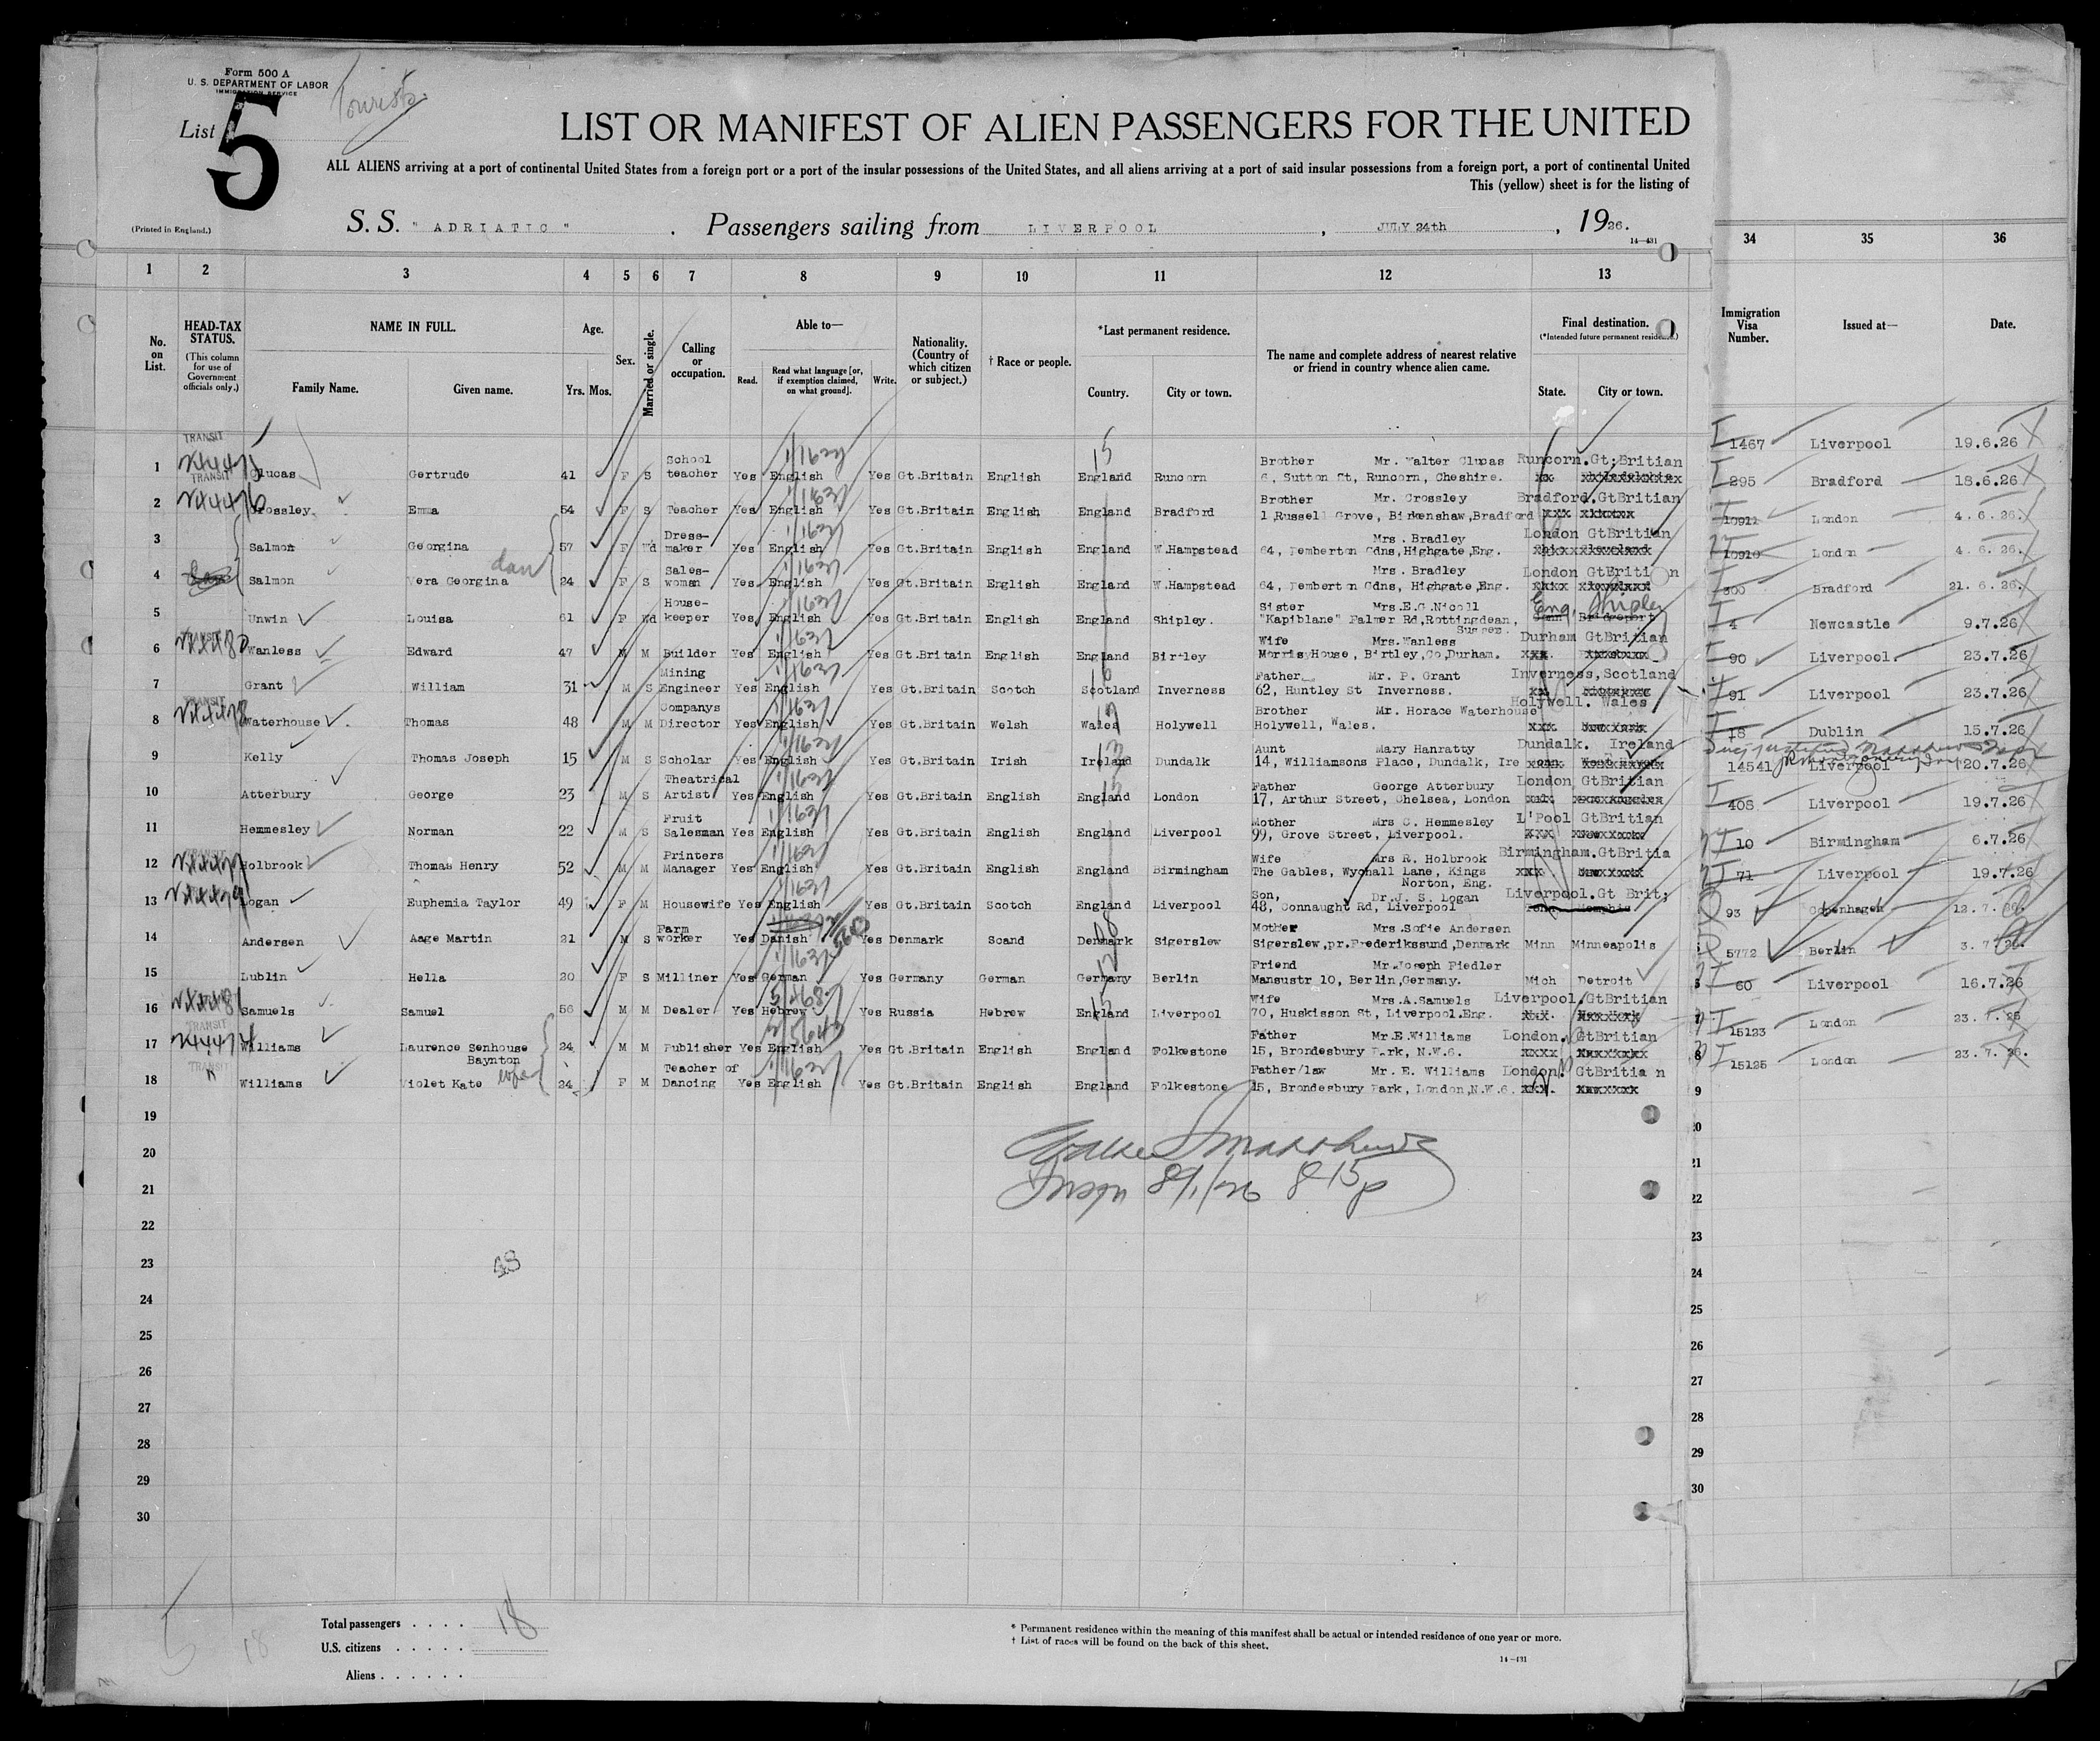 Form 500 A
U. S. DEPARTMENT OF LABOR
IMMIGRATION SERVICE
Tourists
List 5
LIST OR MANIFEST OF ALIEN PASSENGERS FOR THE UNITED
ALL ALIENS arriving at a port of continental United States from a foreign port or a port of the insular possessions of the United States, and all aliens arriving at a port of said insular possessions from a foreign port, a port of continental United
This (yellow) sheet is for the listing of
(Printed in England.)
S. S. " ADRIATIC " . Passengers sailing from LIVERPOOL , JULY 24th , 1926.
14—431
1 2 3 4 5 6 7 8 9 10 11 12 13 34 35 36
No. on List.
HEAD-TAX STATUS.
(This column for use of Government officials only.)
NAME IN FULL.
Family Name. Given name.
Age.
Yrs. Mos.
Sex.
Married or single.
Calling or occupation.
Able to—
Read. Read what language [or, if exemption claimed, on what ground]. Write.
Nationality. (Country of which citizen or subject.)
† Race or people.
*Last permanent residence.
Country. City or town.
The name and complete address of nearest relative or friend in country whence alien came.
Final destination.
(*Intended future permanent residence.)
State. City or town.
Immigration Visa Number.
Issued at—
Date.
1 TRANSIT Clucas Gertrude 41 F S School teacher Yes English Yes Gt.Britain English England Runcorn Brother Mr. Walter Clucas 6, Sutton St, Runcorn, Cheshire. Runcorn.Gt;Britian
2 TRANSIT Crossley Emma 54 F S Teacher Yes English Yes Gt.Britain English England Bradford Brother Mr. Crossley 1,Russell Grove, Birkenshaw,Bradford Bradford.GtBritian
3 Salmon Georgina 57 F Wd Dress-maker Yes English Yes Gt.Britain English England W.Hampstead Mrs. Bradley 64, Pemberton Gdns,Highgate,Eng. London GtBritian
4 Salmon Vera Georgina dau 24 F S Sales-woman Yes English Yes Gt.Britain English England W.Hampstead Mrs. Bradley 64, Pemberton Gdns, Highgate,Eng. London GtBriti n
5 Unwin Louisa 61 F Wd House-keeper Yes English Yes Gt.Britain English England Shipley. Sister Mrs.E.G.Nicoll "Kapiblane" Falmer Rd,Rottingdean, Sussex. Eng. Shipley
6 TRANSIT Wanless Edward 47 M M Builder Yes English Yes Gt.Britain English England Birtley Wife Mrs.Wanless Morris House, Birtley,Co,Durham. Durham GtBritian
7 Grant William 31 M S Mining Engineer Yes English Yes Gt.Britain Scotch Scotland Inverness Father Mr. P. Grant 62, Huntley St Inverness. Inverness,Scotland
8 TRANSIT Waterhouse Thomas 48 M M Companys Director Yes English Yes Gt.Britain Welsh Wales Holywell Brother Mr. Horace Waterhouse Holywell, Wales. Holywell. Wales
9 Kelly Thomas Joseph 15 M S Scholar Yes English Yes Gt.Britain Irish Ireland Dundalk Aunt Mary Hanratty 14, Williamsons Place, Dundalk, Ire Dundalk. Ireland
10 Atterbury George 23 M S Theatrical Artist Yes English Yes Gt.Britain English England London Father George Atterbury 17, Arthur Street, Chelsea, London London GtBritian
11 Hemmesley Norman 22 M S Fruit Salesman Yes English Yes Gt.Britain English England Liverpool Mother Mrs C. Hemmesley 99, Grove Street, Liverpool. L'Pool GtBritian
12 TRANSIT Holbrook Thomas Henry 52 M M Printers Manager Yes English Yes Gt.Britain English England Birmingham Wife Mrs R. Holbrook The Gables, Wychall Lane, Kings Norton, Eng. Birmingham.GtBritia
13 Logan Euphemia Taylor 49 F M Housewife Yes English Yes Gt.Britain Scotch England Liverpool Son, Dr.J. S. Logan 48, Connaught Rd, Liverpool Liverpool.Gt Brit; Tenn Memphis
14 Andersen Aage Martin 21 M S Farm worker Yes Danish Yes Denmark Scand Denmark Sigerslew Mother Mrs.Sofie Andersen Sigerslew,pr.Frederikssund,Denmark Minn Minneapolis
15 Lublin Hella 20 F S Milliner Yes German Yes Germany German Germany Berlin Friend Mr.Joseph Fiedler Mansustr 10, Berlin,Germany. Mich Detroit
16 Samuels Samuel 56 M M Dealer Yes Hebrew Yes Russia Hebrew England Liverpool Wife Mrs.A.Samuels 70, Huskisson St, Liverpool.Eng. Liverpool.GtBritian
17 TRANSIT Williams Laurence Senhouse Baynton 24 M M Publisher Yes English Yes Gt.Britain English England Folkestone Father Mr.E.Williams 15, Brondesbury Park, N.W.6. London. GtBritian
18 TRANSIT Williams Violet Kate wife 24 F M Teacher of Dancing Yes English Yes Gt.Britain English England Folkestone Father/law Mr. E. Williams 15, Brondesbury Park, London,N.W.6. London. GtBritia n
1467 Liverpool 19.6.26
295 Bradford 18.6.26
10911 London 4.6.26.
10910 London 4.6.26.
300 Bradford 21.6.26.
4 Newcastle 9.7.26
90 Liverpool. 23.7.26
91 Liverpool 23.7.26
18 Dublin 15.7.26
14541 Liverpool 20.7.26
408 Liverpool 19.7.26
10 Birmingham 6.7.26
71 Liverpool 19.7.26
93 Copenhagen 12.7.26.
5772 Berlin 3.7.26.
60 Liverpool 16.7.26
15123 London 23.7.26
15125 London 23.7.26.
19
20
21
22
23
24
25
26
27
28
29
30
Insp 8/1/26 8 15 p
Total passengers . . . . 18
U.S. citizens . . . . .
Aliens . . . . . .
* Permanent residence within the meaning of this manifest shall be actual or intended residence of one year or more.
† List of races will be found on the back of this sheet.
14—431
5
18